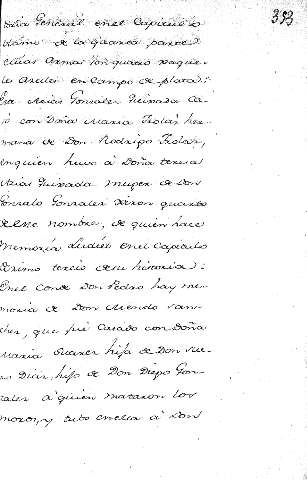 383
dela General enel Capitulo
ultimo de la Garanda parte 2
cuias Armas son quatro xaque-
les Azules en campo de plata):
Era Arias Gonzalez Quixada Ca-
do con Doña Maria Frolas her-
mana de Don Rodrigo Frolas,
enquien huvo à Doña teresa
Arias Quixada Muger de Don
Gonzalo Gonzalez Giron quarto
deeste nombre, de quien hace
memoria Gudiel enel Capitulo
decimo tercio desu historia):
Enel Conde Don Pedro hay me-
moria de Don Mendo San-
chez, que fué Casado con Doña
Maria Suarez hija de Don Sue-
ro Diaz, hijo de Don Diego Gon-
zalez à quien mataron los
moros, y tubo enella à Don